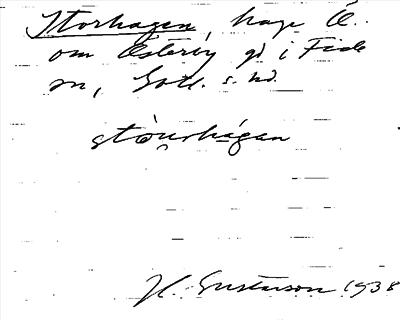 Storhagen, hage Ö.
om Österby gd i Fide
sn, Gotl. s. hd.
stòurhágan
H. Gustavson 1938